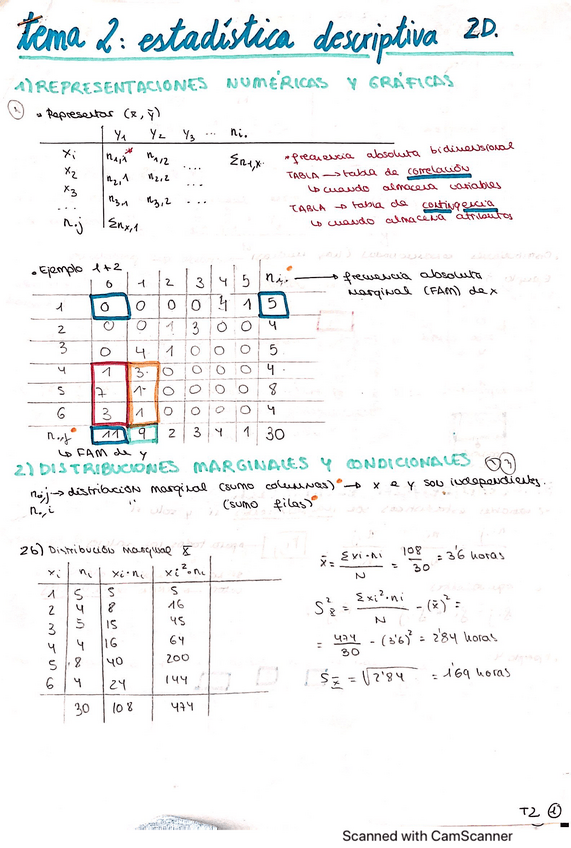 tema 2: estadística descriptiva 2D.
1) REPRESENTACIONES NUMÉRICAS Y GRÁFICAS
1 • Representar (x, y)
y1 y2 y3 ... ni.
xi n1,1* n1,2 ... Σn1,x.
x2 n2,1 n2,2 ...
x3 n3,1 n3,2 ...
...
n.j Σnx,1
*frecuencia absoluta bidimensional
TABLA → tabla de correlación
↳ cuando almacena variables
TABLA → tabla de contingencia
↳ cuando almacena atributos
• Ejemplo 1+2
0 1 2 3 4 5 ni. → frecuencia absoluta
marginal (FAM) de x
1 0 0 0 0 4 1 5
2 0 0 1 3 0 0 4
3 0 4 1 0 0 0 5
4 1 3 0 0 0 0 4
5 7 1 0 0 0 0 8
6 3 1 0 0 0 0 4
n.j 11 9 2 3 4 1 30
↳ FAM de y
2) DISTRIBUCIONES MARGINALES Y CONDICIONALES
n.j → distribución marginal (sumo columnas) → x e y son independientes.
n.,i (sumo filas)
2b) Distribución marginal x
xi ni xi·ni xi²·ni
1 5 5 5
2 4 8 16
3 5 15 45
4 4 16 64
5 8 40 200
6 4 24 144
30 108 474
x̄ = Σxi·ni / N = 108 / 30 = 3'6 horas
S²x = Σxi²·ni / N - (x̄)² =
= 474 / 30 - (3'6)² = 2'84 horas
Sx = √2'84 = 1'69 horas
T2 1
Scanned with CamScanner